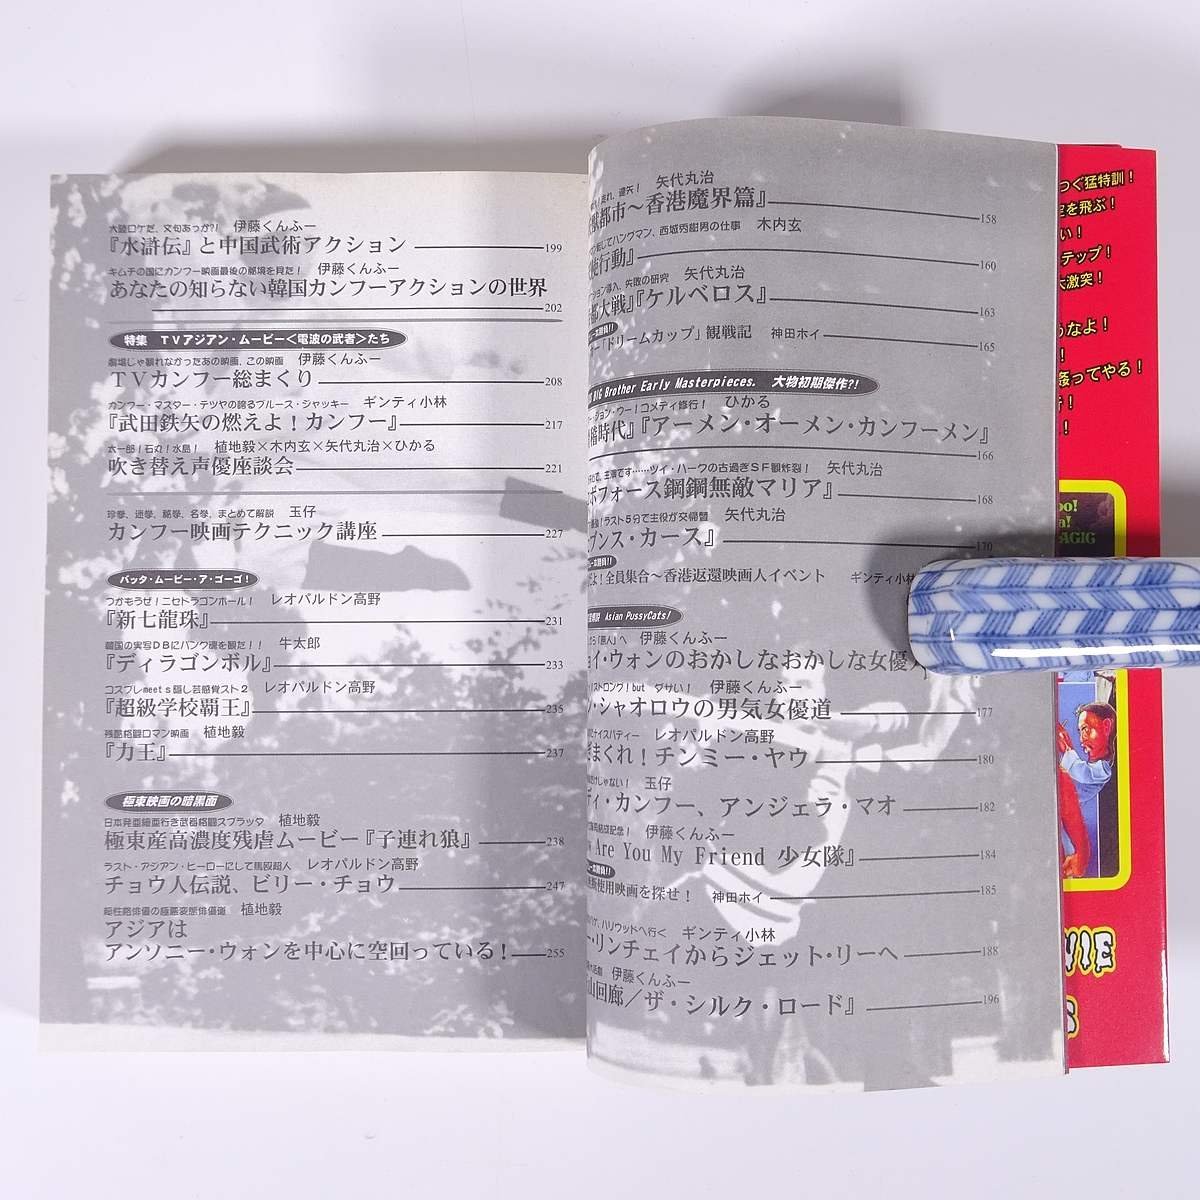 大陸ロケだ、文句あっか?! 伊藤くんふー
『水滸伝』と中国武術アクション 199
キムチの国にカンフー映画最後の秘境を見た! 伊藤くんふー
あなたの知らない韓国カンフーアクションの世界
202
特集 TVアジアン・ムービー<電波の武者>たち
劇場じゃ観れなかったあの映画、この映画 伊藤くんふー
TVカンフー総まくり 208
カンフー・マスター・テツヤの誇るブルース・ジャッキー ギンティ小林
『武田鉄矢の燃えよ!カンフー』 217
太一郎!石丸!水島! 植地毅×木内玄×矢代丸治×ひかる
吹き替え声優座談会 221
珍拳、迷拳、酩拳、名拳、まとめて解説 玉仔
カンフー映画テクニック講座 227
バッタ・ムービー・ア・ゴーゴ!
つかもうぜ!ニセドラゴンボール! レオパルドン高野
『新七龍珠』 231
韓国の実写DBにパンク魂を観た!! 牛太郎
『ディラゴンボル』 233
コスプレmeets隠し芸感覚スト2 レオパルドン高野
『超級学校覇王』 235
残酷格闘ロマン映画 植地毅
『力王』 237
極東映画の暗黒面
日本発亜細亜行き武器格闘スプラッタ 植地毅
極東産高濃度残虐ムービー『子連れ狼』 238
ラスト・アジアン・ヒーローにして馬殴超人 レオパルドン高野
チョウ人伝説、ビリー・チョウ 247
植地毅
アジアは
アンソニー・ウォンを中心に空回っている! 255
走れ、遼矢! 矢代丸治
獣都市～香港魔界篇』 158
転してハングマン、西城秀樹男の仕事 木内玄
使行動』 160
ーション導入、失敗の研究 矢代丸治
都大戦』『ケルベロス』 163
一本勝負!!
ー「ドリームカップ」観戦記 神田ホイ 165
BIG Brother Early Masterpieces. 大物初期傑作?!
ージョン・ウー!コメディ修行! ひかる
時代』『アーメン・オーメン・カンフーメン』
166
主演です……ツイ・ハークの古過ぎSF観炸裂! 矢代丸治
ボフォース鋼鋼無敵マリア』 168
ラスト5分で主役が交帰暫 矢代丸治
ブンス・カース』 170
一本勝負!!
だよ!全員集合～香港返還映画人イベント ギンティ小林
Asian PussyCats!
から「悪人」へ 伊藤くんふー
ョイ・ウォンのおかしなおかしな女優人
ストロング!but ダサい! 伊藤くんふー
ン・シャオロウの男気女優道 177
ナイスバディー レオパルドン高野
だまくれ!チンミー・ヤウ 180
だけじゃない! 玉仔
ディ・カンフー、アンジェラ・マオ 182
記念! 伊藤くんふー
Are You My Friend 少女隊』 184
一本勝負!!
使用映画を探せ! 神田ホイ 185
ハリウッドへ行く ギンティ小林
ー・リンチェイからジェット・リーへ 188
活劇 伊藤くんふー
山回廊/ザ・シルク・ロード』 196
つぐ猛特訓!
を飛ぶ!
い!
テップ!
激突!
うなよ!
!
姦ってやる!
!
!
oo!
a!
AGIC
VIE
S